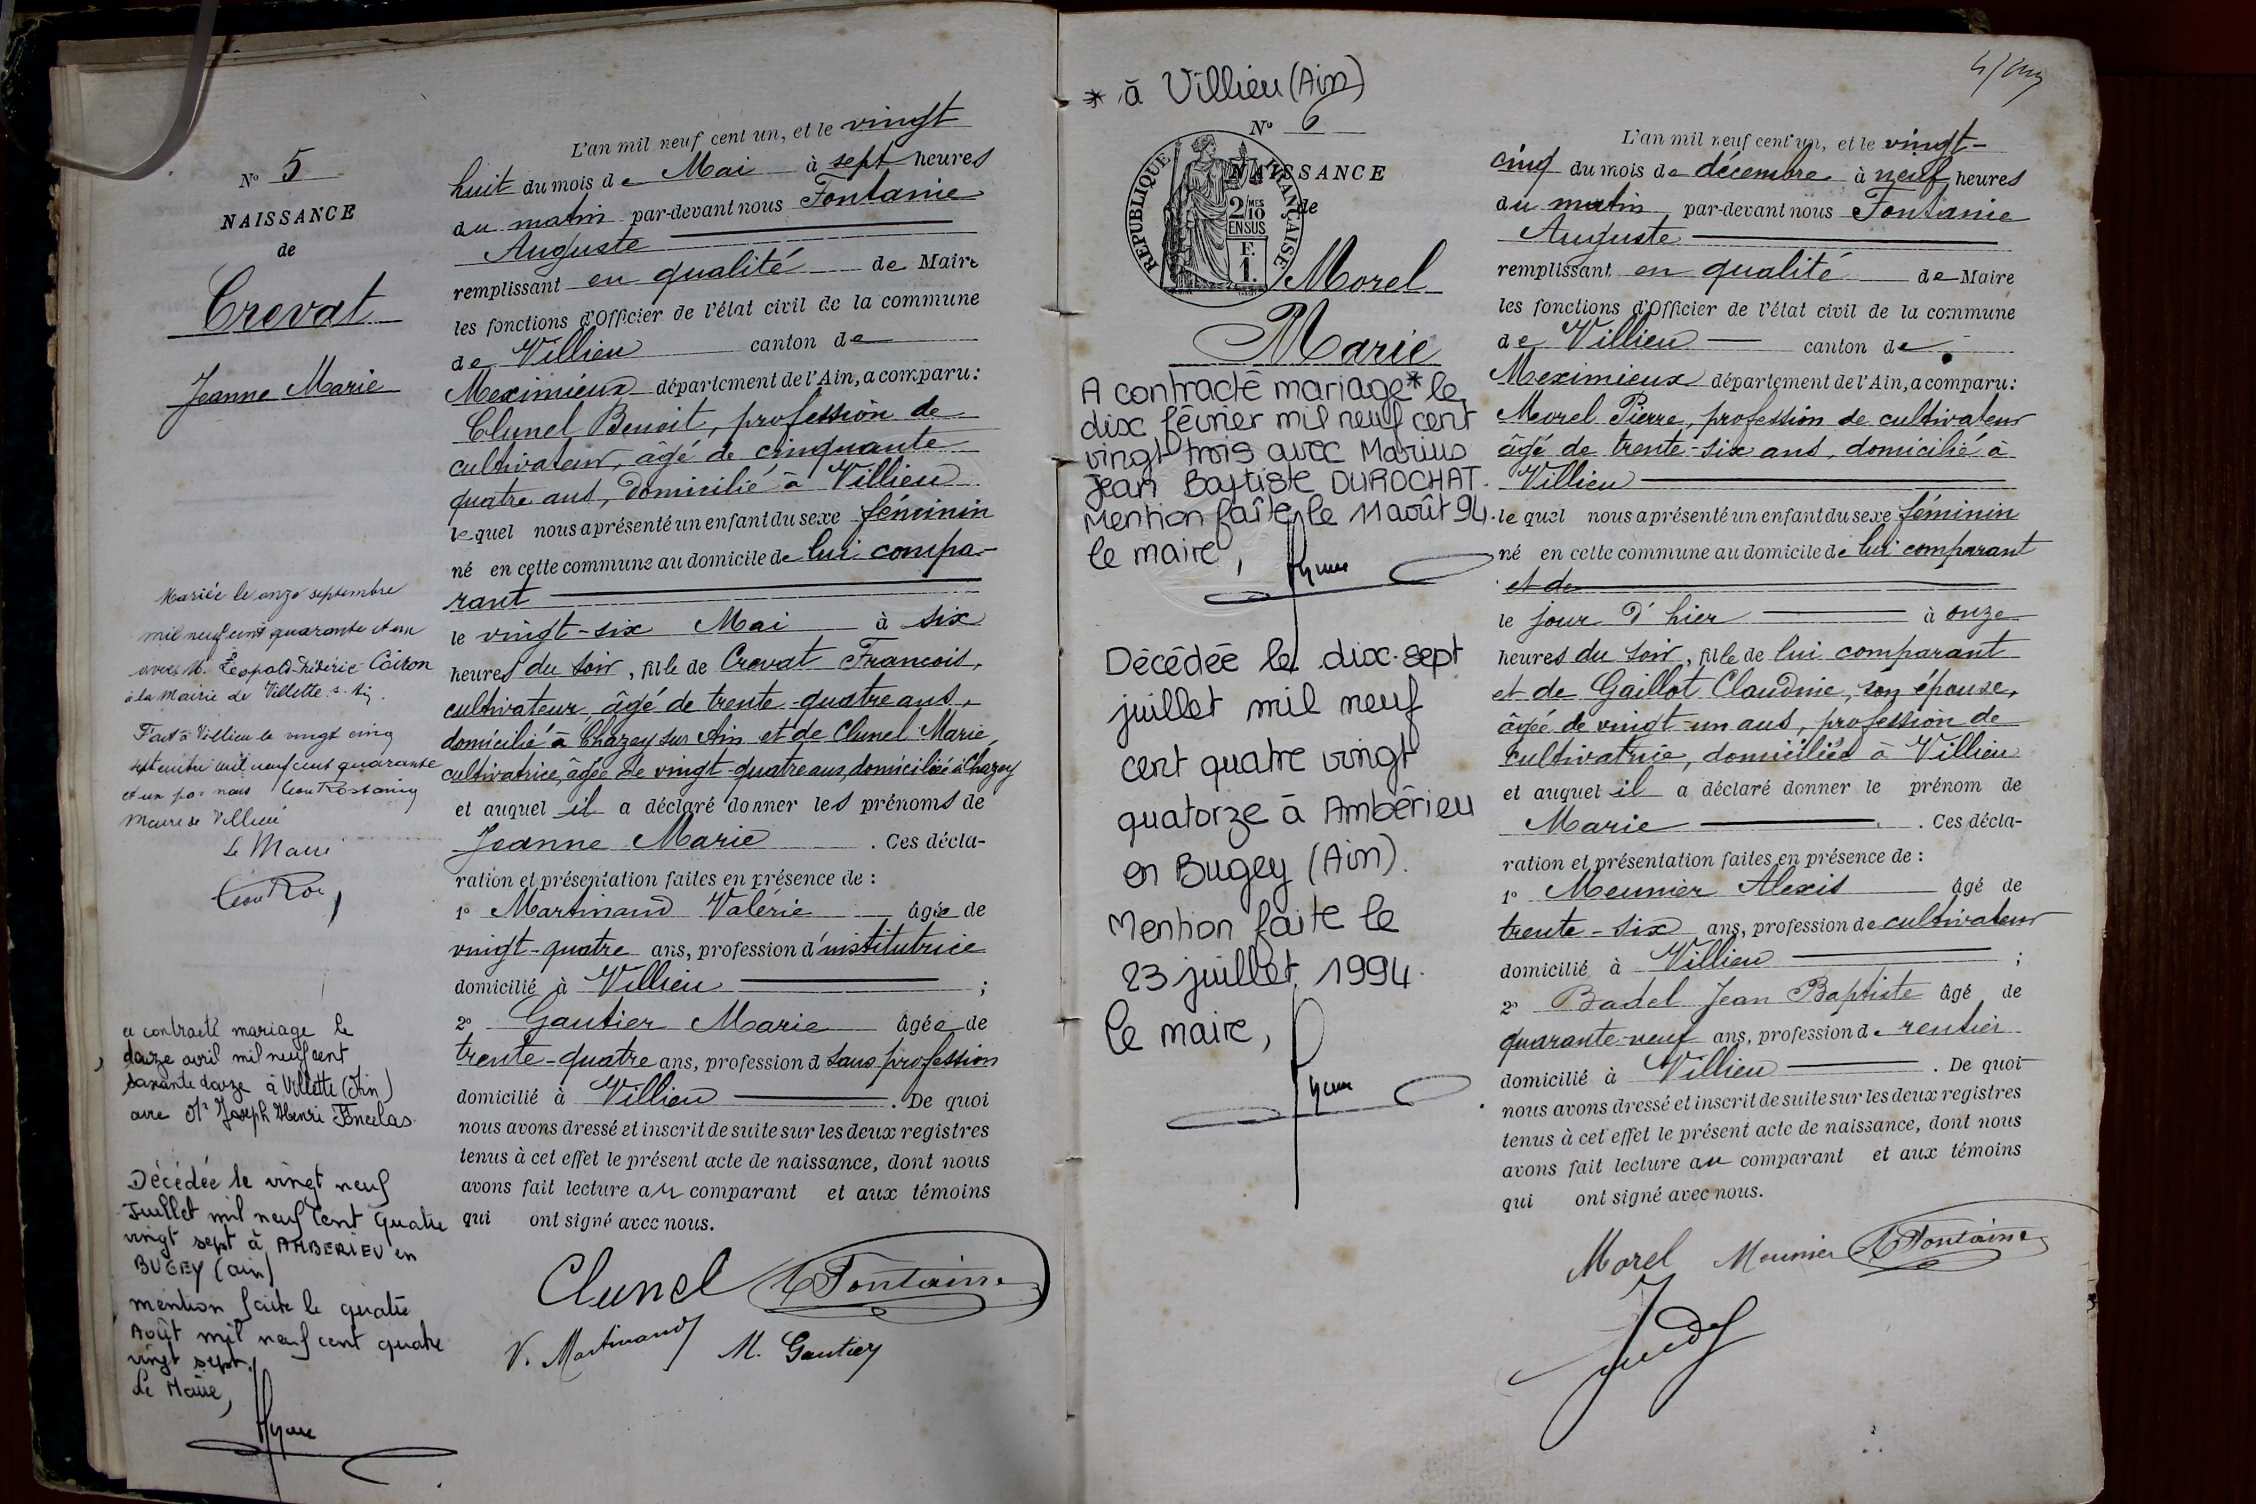 N° 5
NAISSANCE
de
Crevat
Jeanne Marie
Mariée le onze septembre
mil neuf cent quarante et un
avec M. Léopold Frédéric Coiron
à la Mairie de Villette s. Ain.
Fait à Villieu le vingt cinq
septembre mil neuf cent quarante
et un par nous
Maire de Villieu
Le Maire
a contracté mariage le
douze avril mil neuf cent
soixante douze à Villette (Ain)
avec Mr Joseph Henri
Décédée le vingt neuf
Juillet mil neuf cent quatre
vingt sept à AMBERIEU en
BUGEY (ain)
mention faite le quatre
Août mil neuf cent quatre
vingt sept.
Le Maire,
L'an mil neuf cent un, et le vingt
huit du mois de Mai à sept heures
du matin par-devant nous Fontaine
Auguste
remplissant en qualité de Maire
les fonctions d'Officier de l'état civil de la commune
de Villieu canton de
Meximieux département de l'Ain, a comparu:
Clunel Benoit, profession de
cultivateur, âgé de cinquante
quatre ans, domicilié à Villieu
lequel nous a présenté un enfant du sexe féminin
né en cette commune au domicile de lui compa-
rant
le vingt-six Mai à six
heures du soir, fille de Crevat Francois,
cultivateur, âgé de trente-quatre ans,
domicilié à Chazey sur Ain et de Clunel Marie,
cultivatrice, âgée de vingt-quatre ans, domiciliée à Chazey
et auquel il a déclaré donner les prénoms de
Jeanne Marie . Ces décla-
ration et présentation faites en présence de :
1° Martinand Valérie âgée de
vingt-quatre ans, profession d'institutrice
domicilié à Villieu ;
2° Gautier Marie âgée de
trente-quatre ans, profession d sans profession
domicilié à Villieu . De quoi
nous avons dressé et inscrit de suite sur les deux registres
tenus à cet effet le présent acte de naissance, dont nous
avons fait lecture au comparant et aux témoins
qui ont signé avec nous.
Clunel A Fontaine
V. Martinand M. Gautier
* à Villieu (Ain)
N° 6
NAISSANCE
de
RÉPUBLIQUE FRANÇAISE
2/MES
10
EN SUS
F.
1.
Morel
Marie
A contracté mariage * le
dix février mil neuf cent
vingt trois avec Marius
Jean Baptiste DUROCHAT.
Mention faîte le 11 août 94.
le maire,
Décédée le dix-sept
juillet mil neuf
cent quatre vingt
quatorze à Ambérieu
en Bugey (Ain).
Mention faite le
23 juillet 1994.
le maire,
L'an mil neuf cent un, et le vingt-
cinq du mois de décembre à neuf heures
du matin par-devant nous Fontaine
Auguste
remplissant en qualité de Maire
les fonctions d'Officier de l'état civil de la commune
de Villieu canton de
Meximieux département de l'Ain, a comparu:
Morel Pierre, profession de cultivateur
âgé de trente-six ans, domicilié à
Villieu
lequel nous a présenté un enfant du sexe féminin
né en cette commune au domicile de lui comparant
et de
le jour d'hier à onze
heures du soir, fille de lui comparant
et de Gaillot Claudine, son épouse,
âgée de vingt-un ans, profession de
cultivatrice, domiciliée à Villieu
et auquel il a déclaré donner le prénom de
Marie . Ces décla-
ration et présentation faites en présence de :
1° Meunier Alexis âgé de
trente-six ans, profession de cultivateur
domicilié à Villieu ;
2° Badel Jean Baptiste âgé de
quarante-neuf ans, profession de rentier
domicilié à Villieu . De quoi
nous avons dressé et inscrit de suite sur les deux registres
tenus à cet effet le présent acte de naissance, dont nous
avons fait lecture au comparant et aux témoins
qui ont signé avec nous.
Morel Meunier A Fontaine